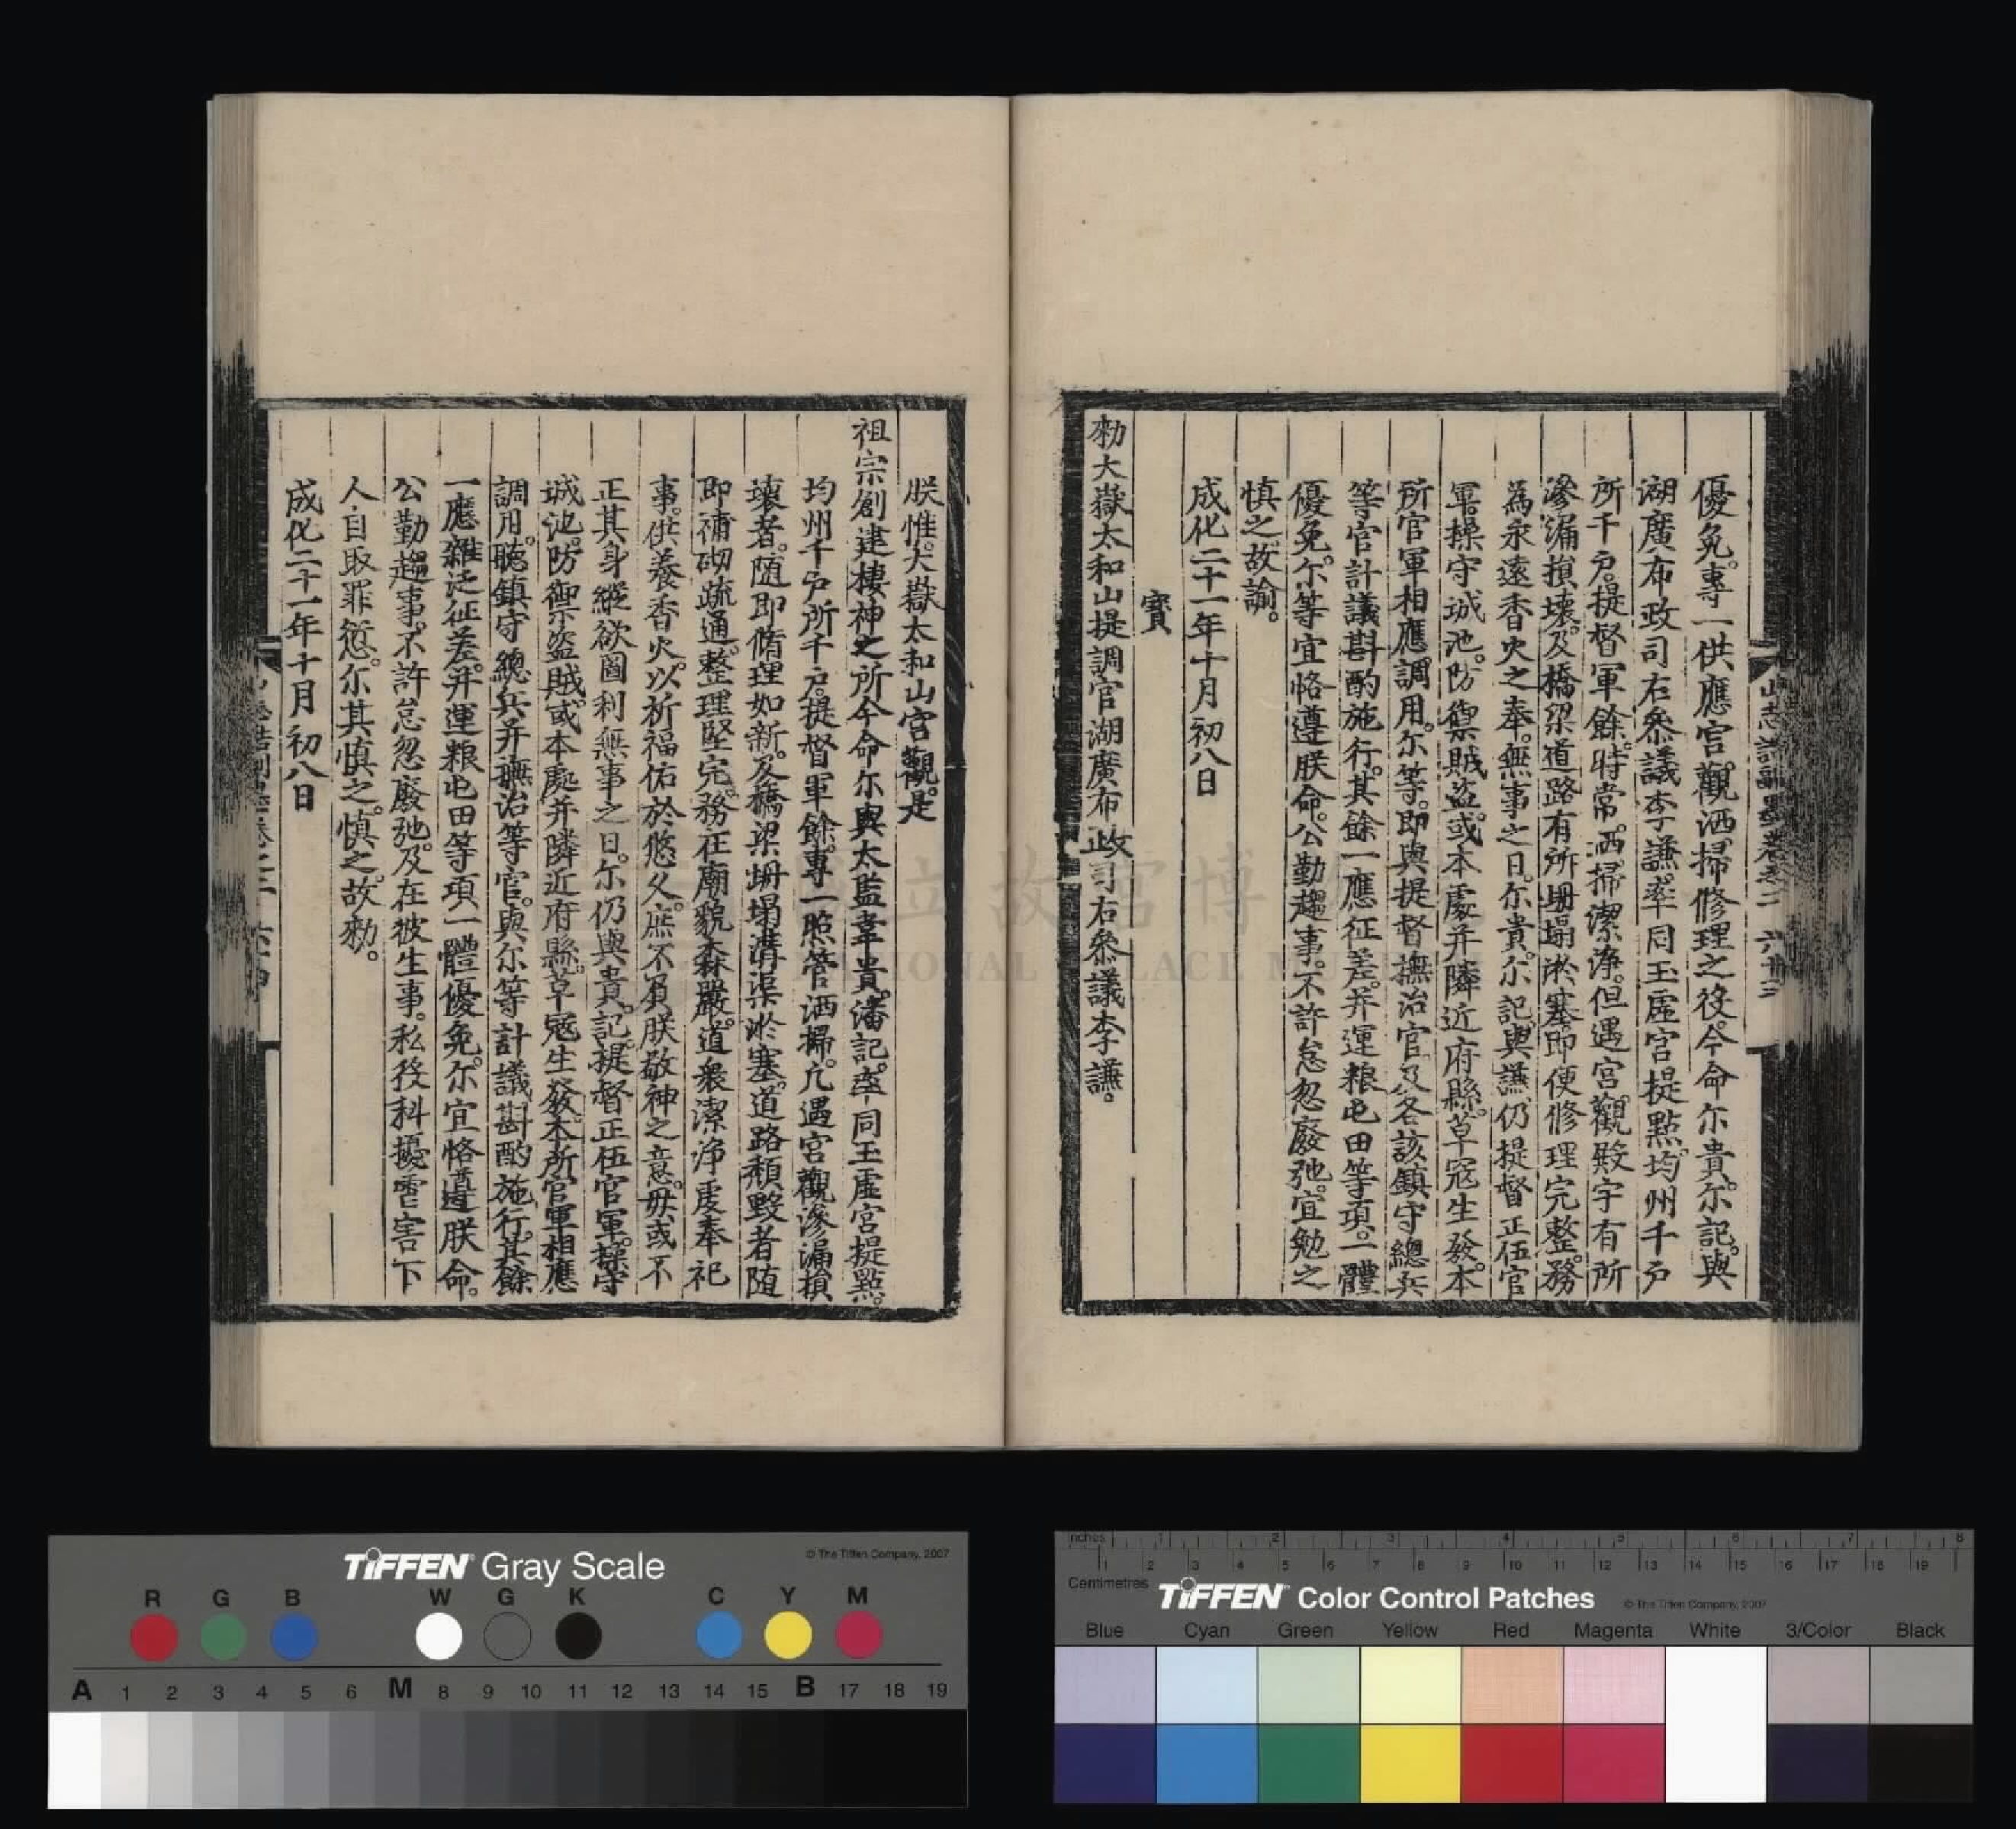 優免專一供應官觀洒掃修理之役今命尔貴尔記與
湖廣布政司右叅議李謙率同玉虛宮提點均州千戶
所千戶提督軍餘時常洒掃潔淨但遇宮觀殿宇有所
滲漏損壞及橋梁道路有所坍塌淤塞即便修理完整務
為永遠香火之奉無事之日尔貴尔記與謙仍提督正伍官
軍操守城池防禦賊盜或本處并隣近府縣草寇生發本
所官軍相應調用尔等即與提督撫治官及各該鎮守總兵
等官計議斟酌施行其餘一應征差并運粮屯田等項一體
優免尔等宜恪遵朕命公勤趨事不許怠忽廢弛宜勉之
慎之故諭。
成化二十一年十月初八日
寳
勑大嶽太和山提調官湖廣布政司右叅議李謙。
朕惟大嶽太和山宮觀是
祖宗創建棲神之所今命尔與太監韋貴潘記率同玉虛宮提點。
均州千戶所千戶提督軍餘專一照管洒掃凢遇宮觀滲漏損
壞者隨即脩理如新及橋梁坍塌溝渠淤塞道路頽毀者随
即補砌疏通整理堅完務在廟貌森嚴道衆潔淨虔奉祀
事供養香火以祈福佑於悠久庶不負朕敬神之意毋或不
正其身縱欲圖利無事之日尔仍與貴記提督正伍官軍操守
城池防禦盜賊或本處并隣近府縣草寇生發本所官軍相應
調用聽鎮守總兵并撫治等官與尔等計議斟酌施行其餘
一應雜泛征差并運粮屯田等項一體優免尔宜恪遵朕命。
公勤趨事不許怠忽廢弛及在彼生事私役科擾害下
人自取罪愆尔其慎之慎之故勑。
成化二十一年十月初八日
國立故宮博
NATIONAL PALACE MUSEUM
TIFFEN Gray Scale
© The Tiffen Company, 2007
R G B W G K C Y M
A 1 2 3 4 5 6 M 8 9 10 11 12 13 14 15 B 17 18 19
Inches 1 2 3 4 5 6 7 8
1 2 3 4 5 6 7 8 9 10 11 12 13 14 15 16 17 18 19
Centimetres
TIFFEN Color Control Patches
© The Tiffen Company, 2007
Blue Cyan Green Yellow Red Magenta White 3/Color Black